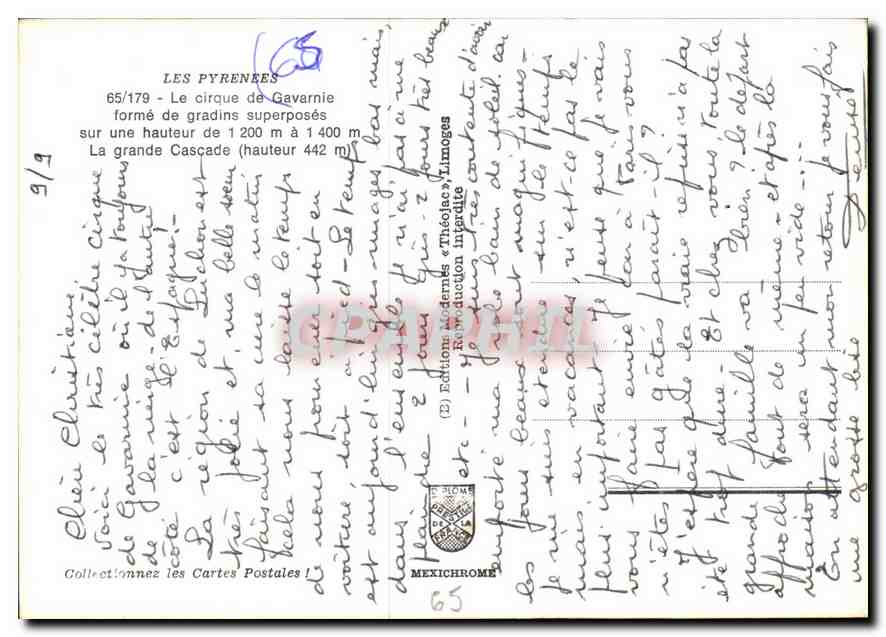 LES PYRENEES
65/179 - Le cirque de Gavarnie
formé de gradins superposés
sur une hauteur de 1 200 m à 1 400 m
La grande Cascade (hauteur 442 m)
65
9/9
Chère Christiane
Voici le très célèbre cirque
de Gavarnie où il y a toujours
de la neige - de l'autre
côté c'est l'Espagne! -
La région de Luchon est
très jolie et ma belle sœur
faisant sa cure le matin
cela nous laisse le temps
de nous promener soit en
voiture soit à pied - Le temps
est aujourd'hui gris nuages bas mais,
dans l'ensemble je n'ai pas à me
plaindre 2 jours gris - 2 jours très beaux
etc - Je suis très contente d'avoir
emporté ma robe bain de soleil car
les jours beaux sont magnifiques -
Je me suis étendue sur le temps
mais en vacances, n'est ce pas le
plus important? Je pense que je vais
vous faire envie car à Paris vous
n'êtes pas gâtés paraît-il?
J'espère que la vraie refuite n'a pas
été trop dure - Et chez vous toute la
grande famille va bien? le départ
approche tout de même - et après la
maison sera un peu vide -!
En attendant mon retour je vous fais
une grosse bise
Denise
(B) Editions Modernes «Théojac», Limoges
Reproduction interdite
DIPLOME
PRESTIGE
DE LA
FRANCE
MEXICHROME
Collectionnez les Cartes Postales !
65
CPAPHIL